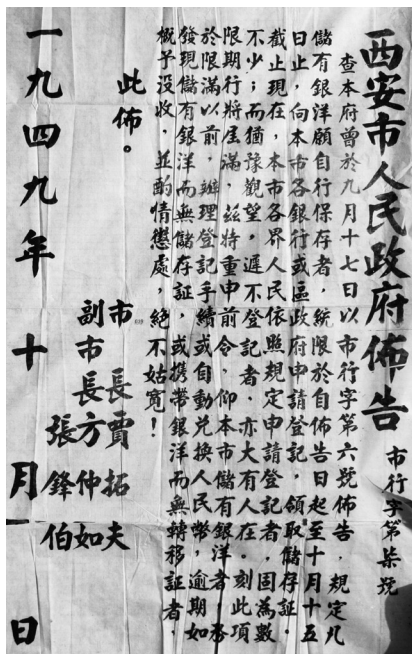 西安市人民政府佈告
市行字第柒號
查本府曾於九月十七日以市行字第六號佈告，規定凡
儲有銀洋願自行保存者，統限於自佈告日起至十月十五
日止，向本市各銀行或區政府申請登記，領取儲存証。
截止現在，本市各界人民依照規定申請登記者，固為數
不少；而猶豫觀望，遲不登記者，亦大有人在。刻此項
限期行將屆滿，茲特重申前令，仰本市儲有銀洋者，務
於限滿以前，辦理登記手續或自動兌換人民幣，逾期如
發現儲有銀洋而無儲存証，或携帶銀洋而無轉移証者，
概予没收，並酌情懲處，絕不姑寬！
此佈。
市長賈拓夫
副市長方仲如
張鋒伯
一九四九年十月 日